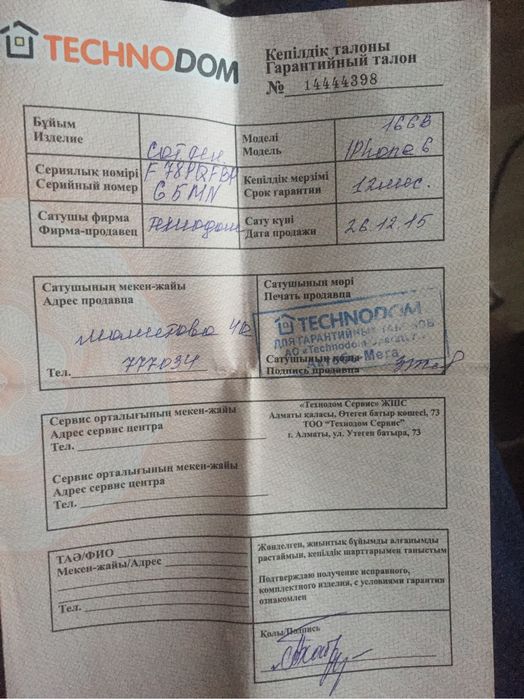 TECHNODOM
Кепілдік талоны
Гарантийный талон
№ 14444398
Бұйым
Изделие
Сот
Моделі
Модель
16GB
IPhone 6
Сериялық нөмірі
Серийный номер
F78PQFBP
G5MN
Кепілдік мерзімі
Срок гарантии
12мес.
Сатушы фирма
Фирма-продавец
Технодом
Сату күні
Дата продажи
26.12.15
Сатушының мекен-жайы
Адрес продавца
Тел. 777034
Сатушының мөрі
Печать продавца
TECHNODOM
ДЛЯ ГАРАНТИЙНЫХ ТАЛОНОВ
АО «Technodom
Мега
Сатушының қолы
Подпись продавца
Сервис орталығының мекен-жайы
Адрес сервис центра
Тел.
Сервис орталығының мекен-жайы
Адрес сервис центра
Тел.
«Технодом Сервис» ЖШС
Алматы қаласы, Өтеген батыр көшесі, 73
ТОО "Технодом Сервис"
г. Алматы, ул. Утеген батыра, 73
ТАӘ/ФИО
Мекен-жайы/Адрес
Тел.
Жөнделген, жиынтық бұйымды алғанымды
растаймын, кепілдік шарттарымен таныстым
Подтверждаю получение исправного,
комплектного изделия, с условиями гарантии
ознакомлен
Қолы/Подпись